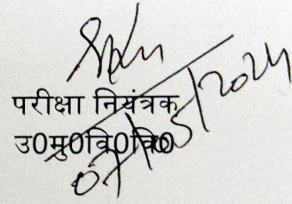 परीक्षा नियंत्रक
उ0मु0वि0वि0
07/05/2024